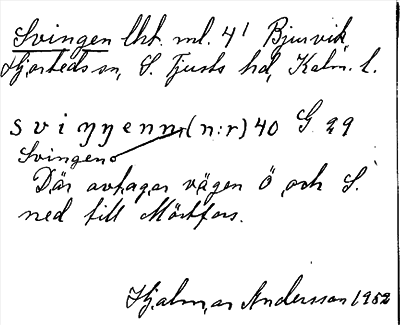 Svingen lht. ml. 41 Bjursvik,
Hjorteds sn, S. Tjusts hd, Kalm. l.
sviŋŋenn (n:r) 40 G 29
Svingen
Där avtager vägen ö och S.
ned till Mörtfors.
Hjalmar Andersson 1952